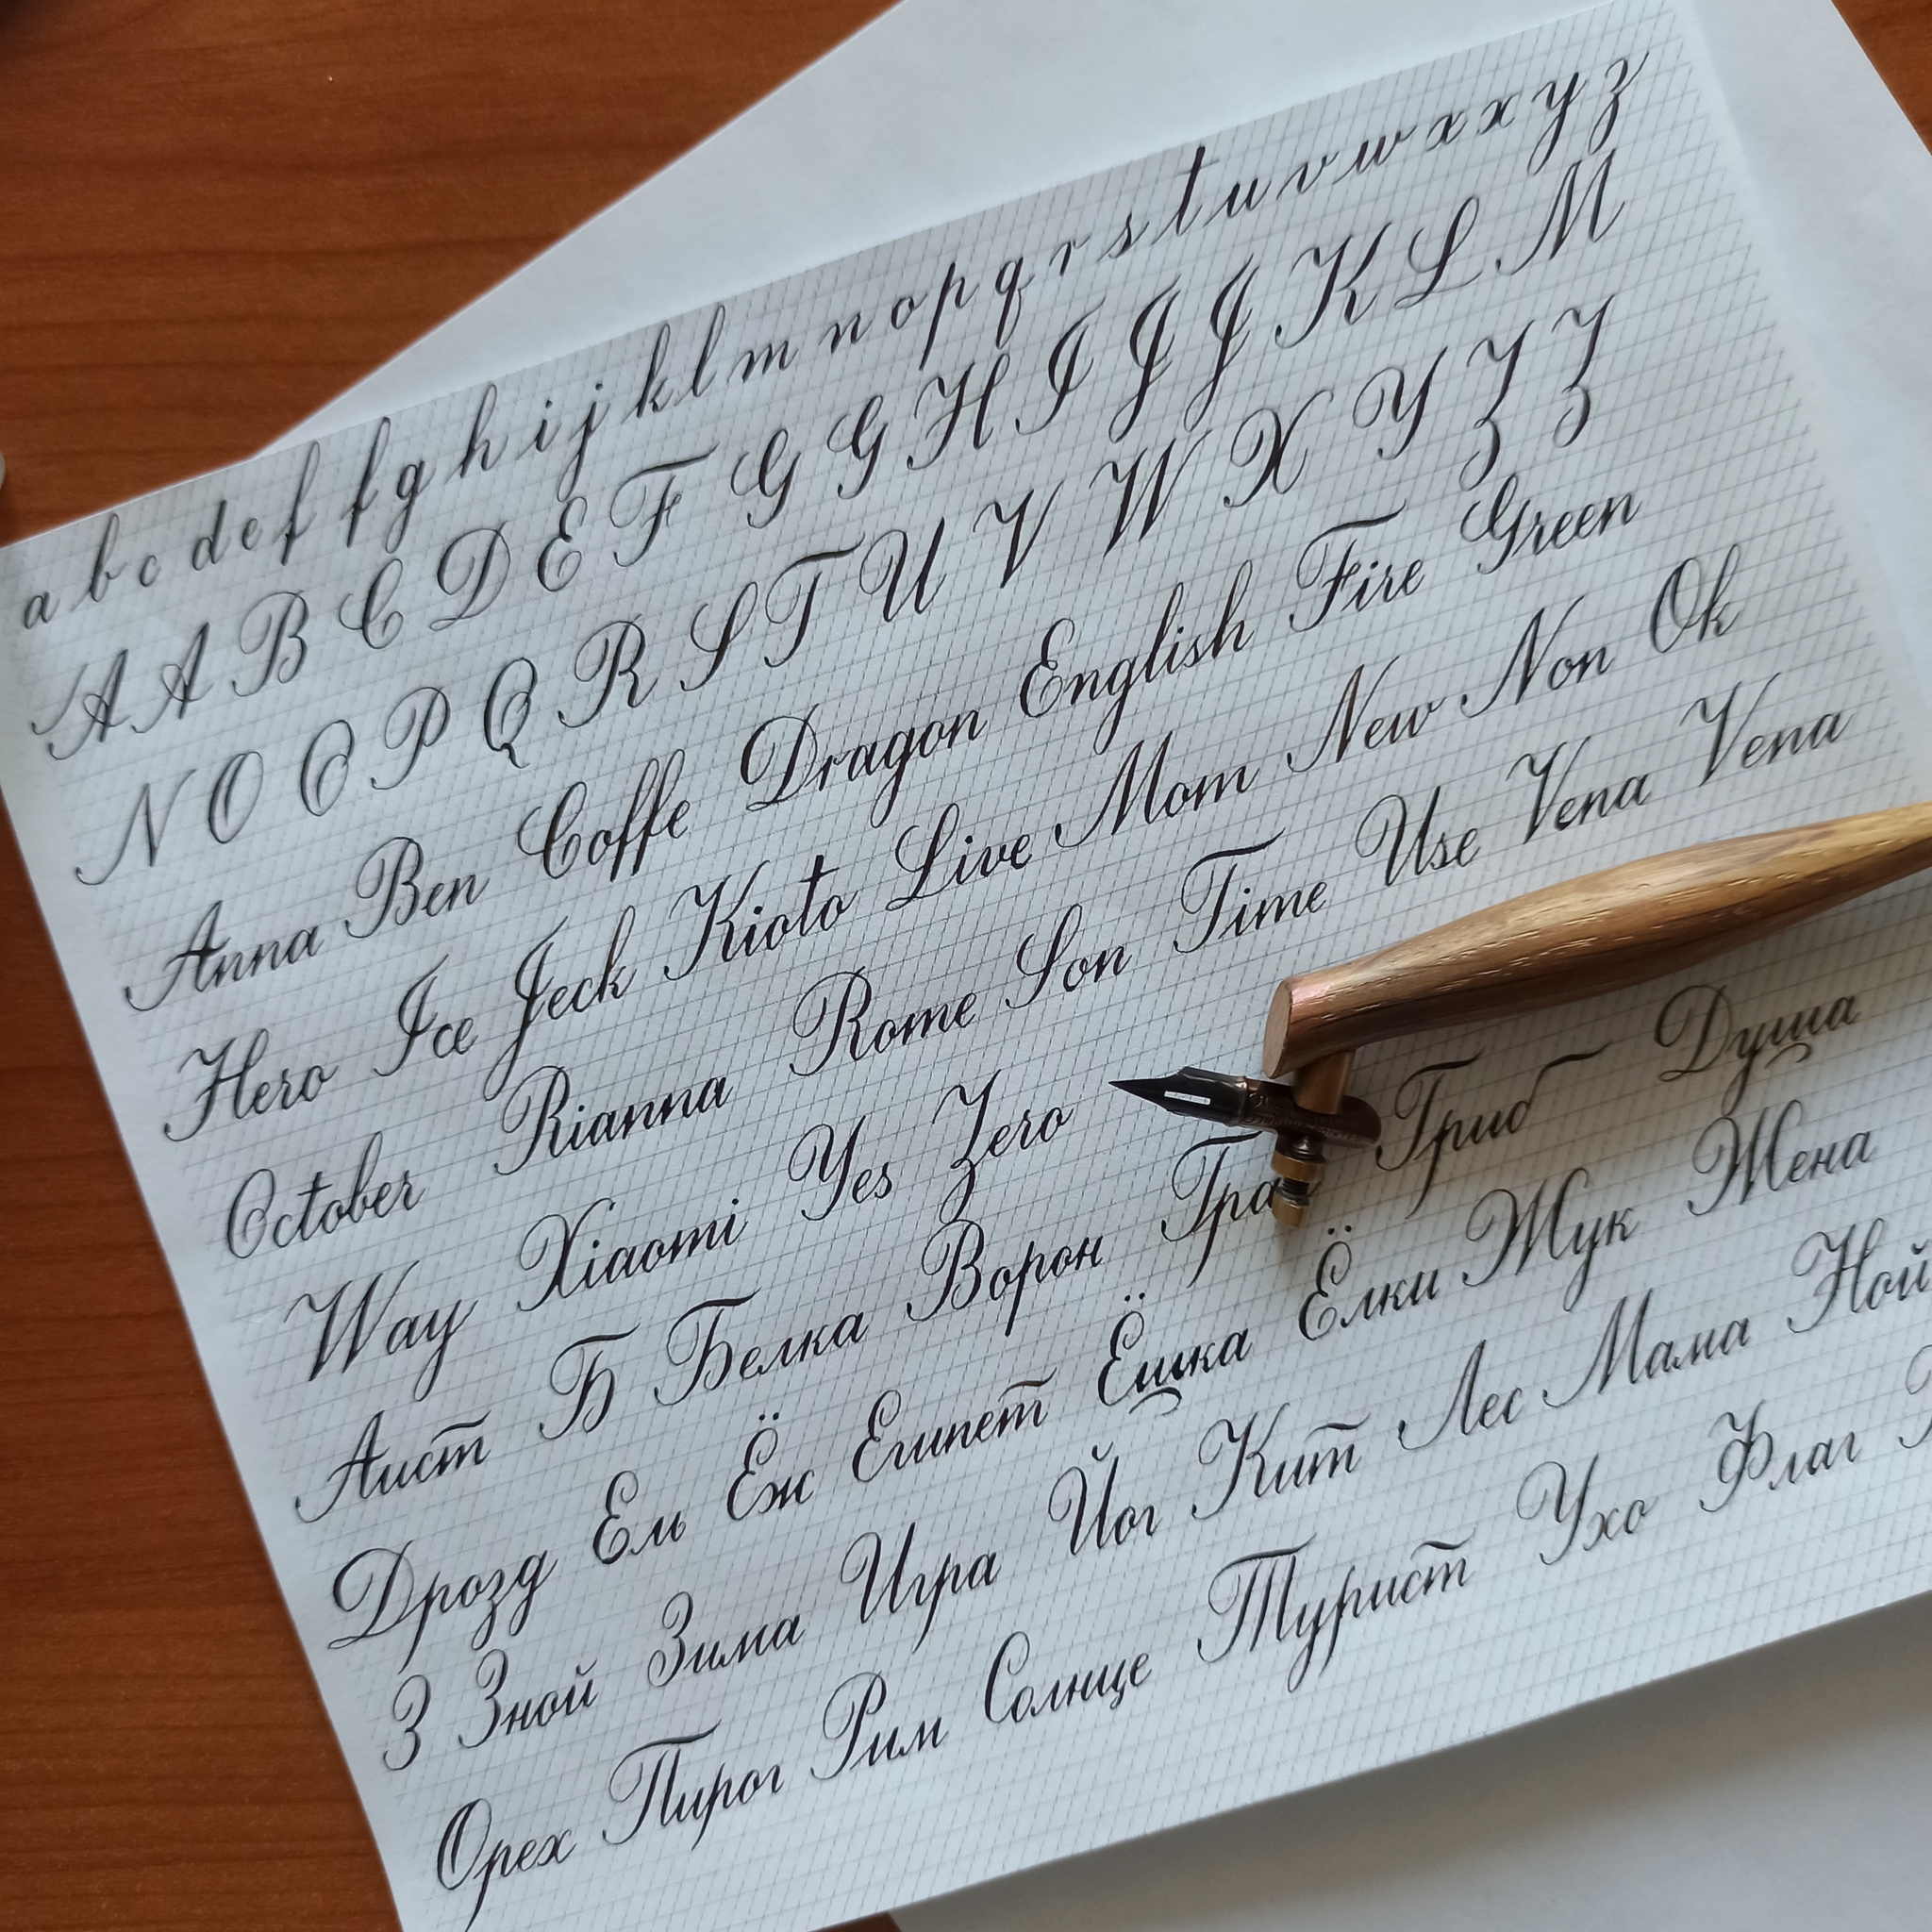 a b c d e f f g h i j k l m n o p q r s t u v w x x y z
A A B C D E F G G H I J J K L M
N O O P Q R S T U V W X Y Z Z
Anna Ben Coffe Dragon English Fire Green
Hero Ice Jeck Kioto Live Mom New Non Ok
October Rianna Rome Son Time Use Vena Vena
Way Xiaomi Yes Zero
Аист Б Белка Ворон Гриб Душа
Дрозд Ель Ёж Египет Ёшка Ёлки Жук Жена
З Зной Зима Игра Йог Кит Лес Мама Ной
Орех Пирог Рим Солнце Турист Ухо Флаг